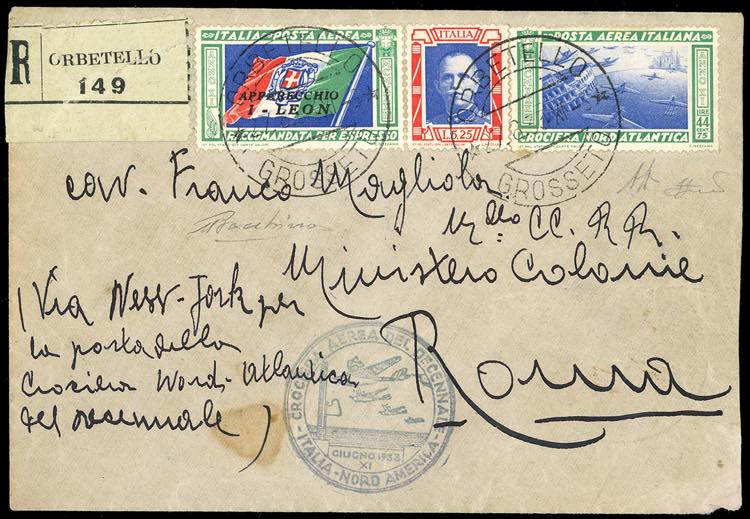 R
ORBETELLO
149
ITALIA-POSTA AEREA
APPARECCHIO
I-LEON
RACCOMANDATA PER ESPRESSO
ITALIA
L.5.25
POSTA AEREA ITALIANA
CROCIERA NORD ATLANTICA
LIRE
44
CENT
75
ORBETELLO
GROSSETO
ORBETELLO
GROSSETO
cav. Franco Magliola
M.llo CC. RR.
Ministero Colonie
Roma
(Via New-York per
la posta della
Crociera Nord-Atlantica
del decennale)
CROCIERA AEREA DEL DECENNALE
ITALIA-NORD AMERICA
GIUGNO 1933
XI